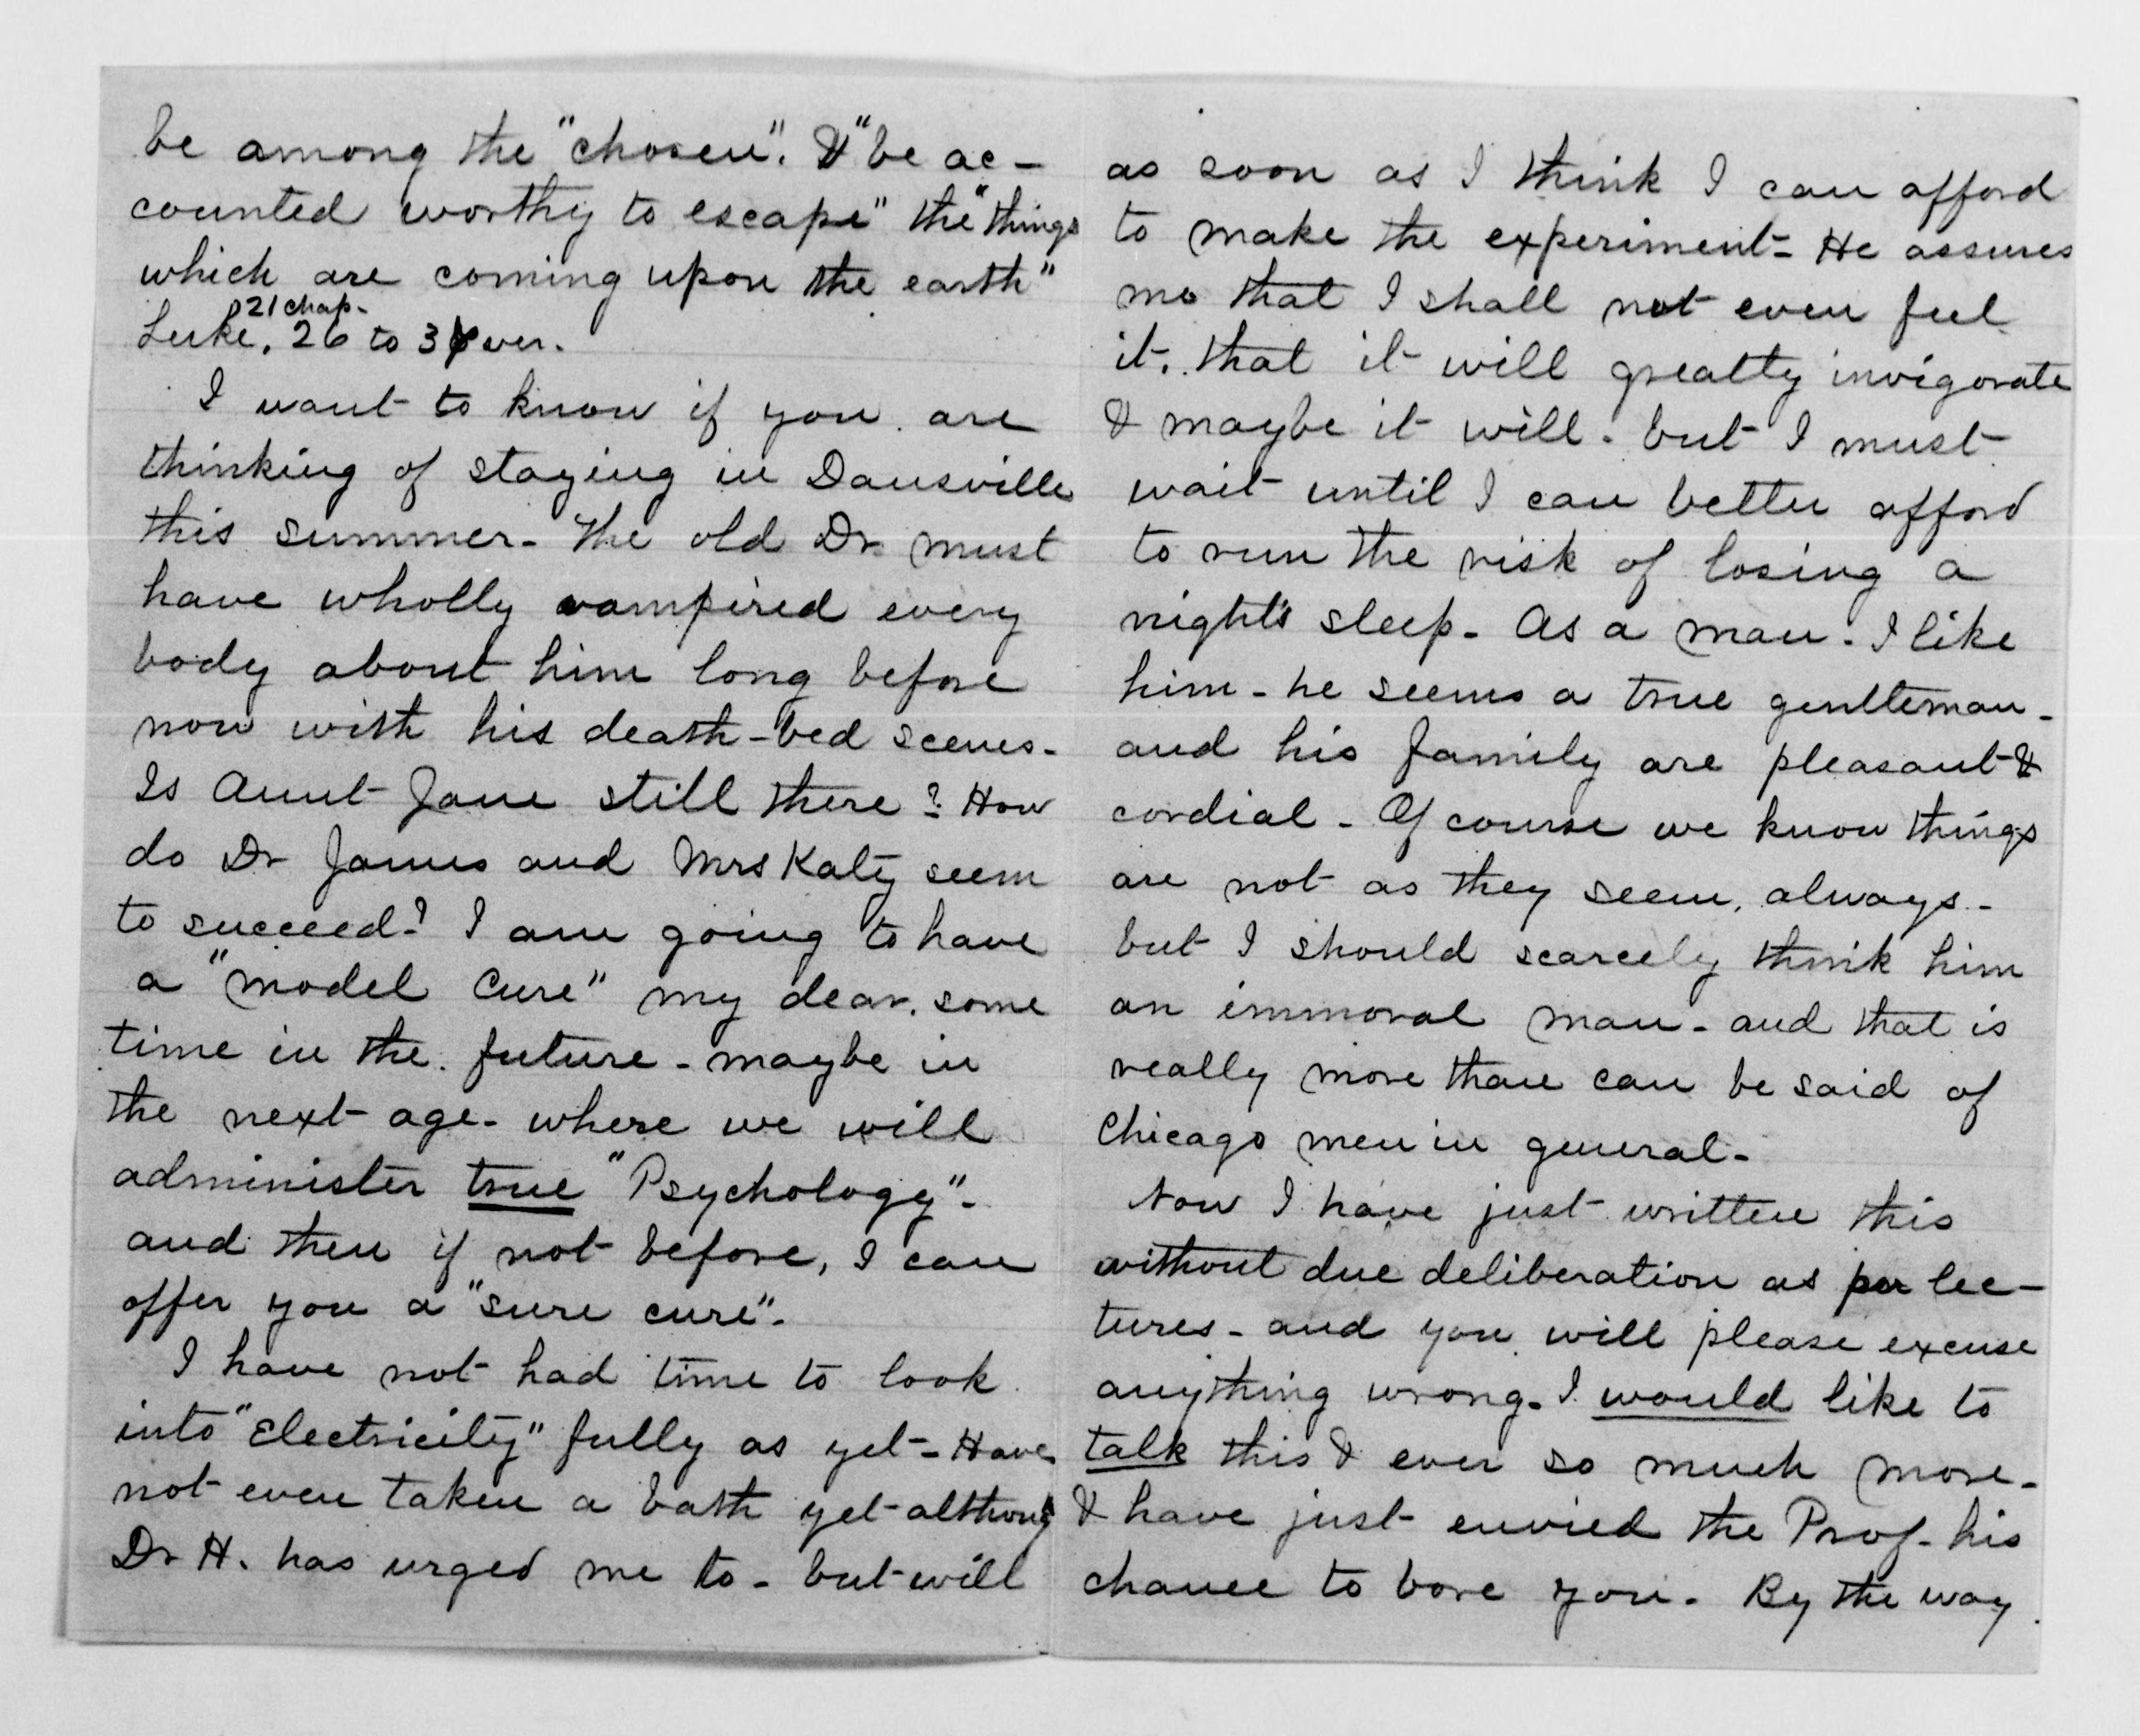 be among the "chosen". & "be ac-
counted worthy to escape" the "things
which are coming upon the earth"
21 chap-
Luke, 26 to 36 ver.
I want to know if you are
thinking of staying in Dansville
this summer- The old Dr must
have wholly vampired every
body about him long before
now with his death-bed scenes-
Is Aunt Jane still there? How
do Dr James and Mrs Katy seem
to succeed? I am going to have
a "model Cure" my dear, some
time in the future - maybe in
the next age - where we will
administer true "Psychology"-
and then if not before, I can
offer you a "sure cure".
I have not had time to look
into "Electricity" fully as yet - Have
not even taken a bath yet although
Dr H. has urged me to - but will
as soon as I think I can afford
to make the experiment - He assures
me that I shall not even feel
it. that it will greatly invigorate
& maybe it will - but I must
wait until I can better afford
to run the risk of losing a
night's sleep - As a man - I like
him - he seems a true gentleman -
and his family are pleasant &
cordial - Of course we know things
are not as they seem, always -
but I should scarcely think him
an immoral man - and that is
really more than can be said of
Chicago men in general -
Now I have just written this
without due deliberation as per lec-
tures - and you will please excuse
anything wrong. I would like to
talk this & ever so much more -
& have just envied the Prof - his
chance to bore you. By the way